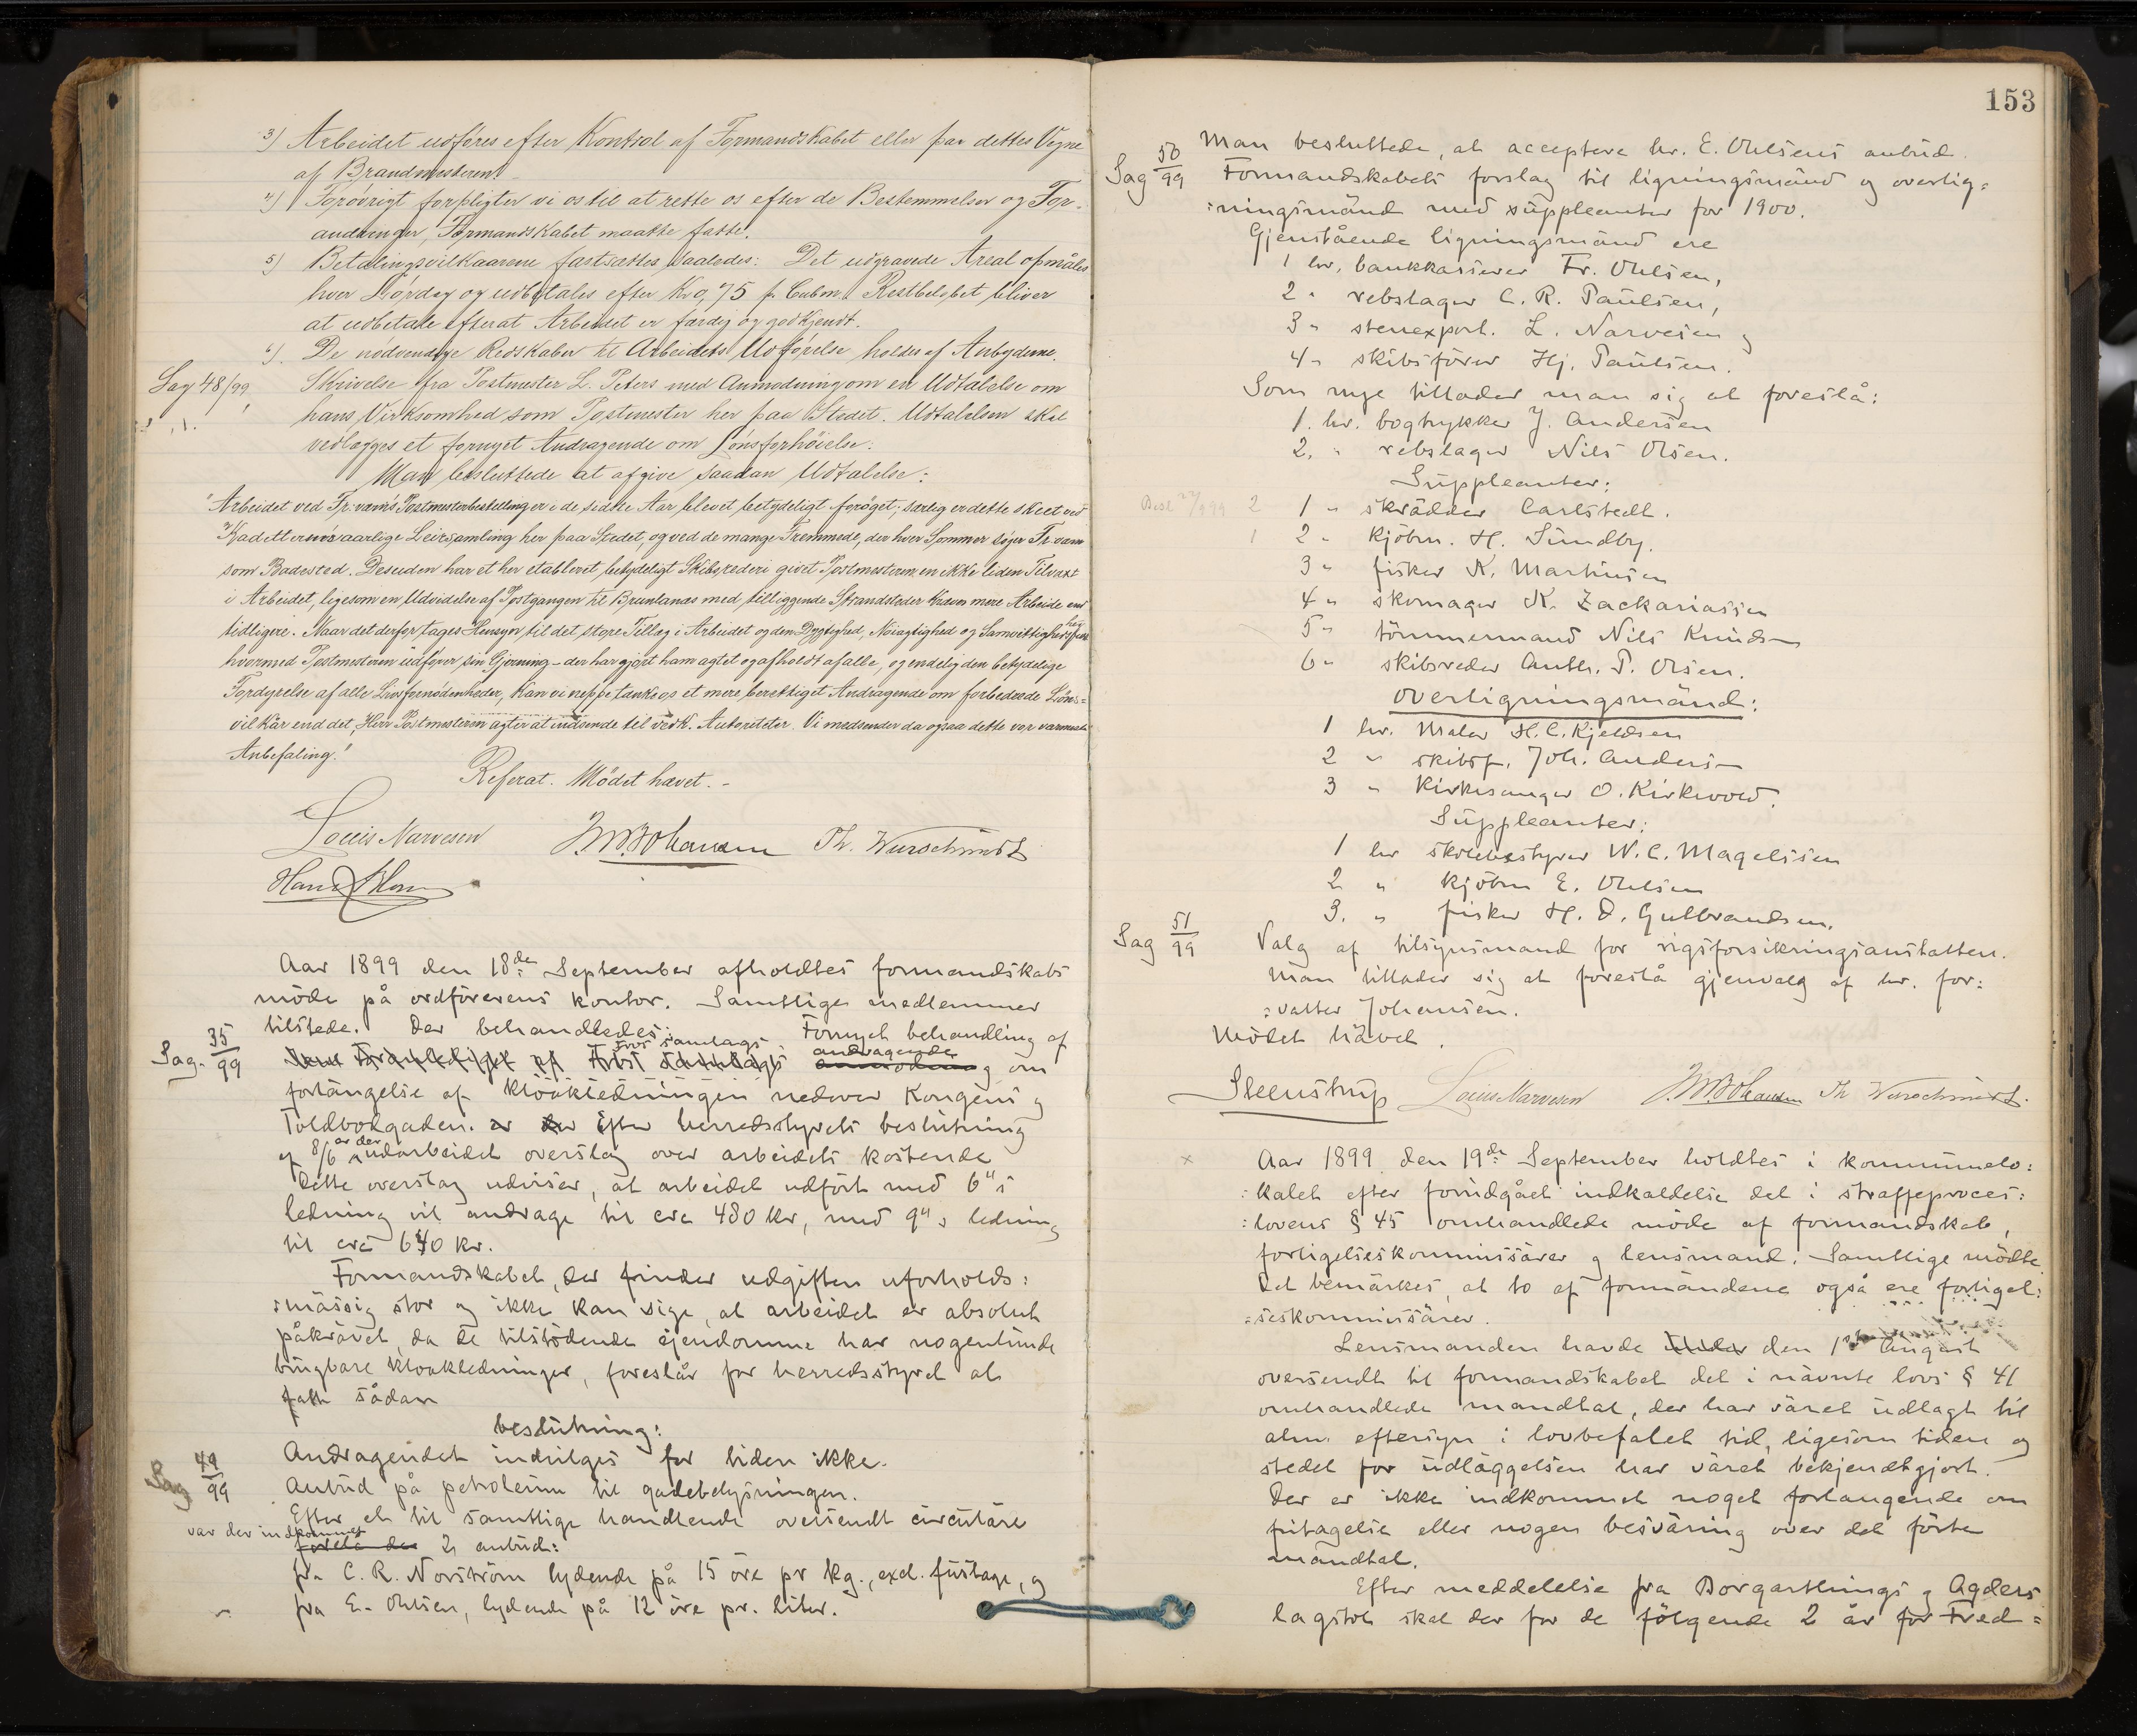 3) Arbeidet udføres efter Kontrol af Formandskabet eller paa dettes Vegne
af Brandmesteren.
4) Forøvrigt forpligter vi os til at rette os efter de Bestemmelser og For-
andringer, Formandskabet maatte fatte.
5) Betalingsvilkaarene fastsættes saaledes: Det udgravede Areal opmåles
hver Lørdag og udbetales efter Kr 0,75 pr Cubm. Restbeløbet bliver
at udbetale efterat Arbeidet er færdig og godkjendt.
6) De nødvendige Redskaber til Arbeidets Udførelse holdes af Anbyderne.
Sag 48/99
Skrivelse fra Postmester L. Peters med Anmodning om en Udtalelse om
hans Virksomhed som Postmester her paa Stedet. Udtalelsen skal
vedlægges et fornyet Andragende om Lønsforhøielse.
Man besluttede at afgive saadan Udtalelse:
"Arbeidet ved Fr.værns Postmesterbestilling er i de sidste Aar blevet betydeligt forøget; særlig er dette skeet ved
Kadetternes aarlige Leirsamling her paa Stedet, og ved de mange Fremmede, der hver Sommer søger Fr.værn
som Badested. Desuden har et her etableret, betydeligt Skibsrederi givet Postmesteren en ikke liden Tilvæxt
i Arbeidet, ligesom en Udvidelse af Postgangen til Brunlanæs med tilliggende Strandsteder kræver mere Arbeide end
tidligere. Naar det derfor tages Hensyn til det store Tillæg i Arbeidet og den Dygtighed, Nøiagtighed og Samvittighedsfuldhed
hvormed Postmesteren udfører sin Gjerning – der har gjort ham agtet og afholdt af alle, og endelig den betydelige
Fordyrelse af alle Livsfornødenheder, kan vi neppe tænke os et mere berettiget Andragende om forbedrede Løns=
vilkår end det, Herr Postmesteren agter at indsende til vedk. Autoriteter. Vi medsender da ogsaa dette vor varmeste
Anbefaling!
Referat. Mødet hævet. –
Louis Narvesen J.M. Johansen Th. Wurschmidt
Aar 1899 den 18de September afholdtes formandskabs
møde på ordførerens kontor. Samtlige medlemmer
tilstede. Der behandledes: Fornyet behandling af
Sag. 35/99
samlags andragende om
forlængelse af kloakledningen nedover Kongens og
Toldbodgaden. Efter herredsstyrets beslutning
af 8/6 er der udarbeidet overslag over arbeidets kostende
Dette overslag udviser, at arbeidet udført med 6"s
ledning vil andrage til cra 480 kr, med 9"s ledning
til cra 640 kr.
Formandskabet, der finder udgiften uforholds:
:mässig stor og ikke kan sige, at arbeidet er absolut
påkrävet, da de tilstødende eiendomme har nogenlunde
brugbare kloakledninger, foreslår for herredsstyret at
fatte sådan
beslutning:
Andragendet indvilges for tiden ikke.
Sag 49/99
Anbud på petroleum til gadebelysningen.
Efter et til samtlige handlende oversendt circulære
var der indkommet
2 anbud:
fra C. R. Norström lydende på 15 øre pr kg., excl. fustage, og
fra E. Ohlsen, lydende på 12 øre pr. liter.
153
Man besluttede, at acceptere hr. E. Ohlsens anbud.
Sag 50/99
Formandskabets forslag til ligningsmänd og overlig=
:ningsmänd med suppleanter for 1900.
Gjenstående ligningsmänd ere
1 hr. bankkasserer Fr. Ohlsen,
2 " rebslager C. R. Paulsen,
3 " stenexport. L. Narvesen og
4 " skibsfører Hj. Paulsen.
Som nye tillader man sig at foreslå:
1. hr. bogtrykker J. Andersen
2. " rebslager Nils Olsen.
Suppleanter:
2 1 " skrädder Carlstedt.
1 2 " kjøbm. H. Sundby.
3 " fisker K. Martinsen
4 " skomager K. Zackariassen
5 " tømmermand Nils Knudsen
6 " skibsreder Anth. P. Olsen.
Overligningsmänd:
1 hr. Maler H. C. Kjeldsen
2 " skibsf. Joh. Andersen
3 " Kirkesanger O. Kirkevold.
Suppleanter:
1 hr skolebestyrer W. C. Magelssen
2 " kjøbm E. Ohlsen
3. " fisker H. D. Gulbrandsen.
Sag 51/99
Valg af tilsynsmand for rigsforsikringsanstalten.
Man tillader sig at foreslå gjenvalg af hr. for:
:valter Johansen.
Mødet hävet.
Steenstrup Louis Narvesen J.M. Johansen Th Wurschmidt.
x
Aar 1899 den 19de September holdtes i kommunelo:
:kalet efter forudgået indkaldelse det i straffeproces:
:lovens § 45 omhandlede møde af formandskab,
forligelseskommissärer og lensmand. Samtlige mødte.
Det bemärkes, at to af formändene også ere forligel:
:seskommissärer.
Lensmanden havde under den 1ste August
oversendt til formandskabet det i nävnte lovs § 41
omhandlede mandtal, der har väret udlagt til
alm. eftersyn i lovbefalet tid, ligesom tiden og
stedet for udläggelsen har väret bekjendtgjort.
Der er ikke indkommet noget forlangende om
fritagelse eller nogen besväring over det førte
mandtal.
Efter meddelelse fra Borgarthings og Agders
lagstol skal der for de følgende 2 år for Fred=